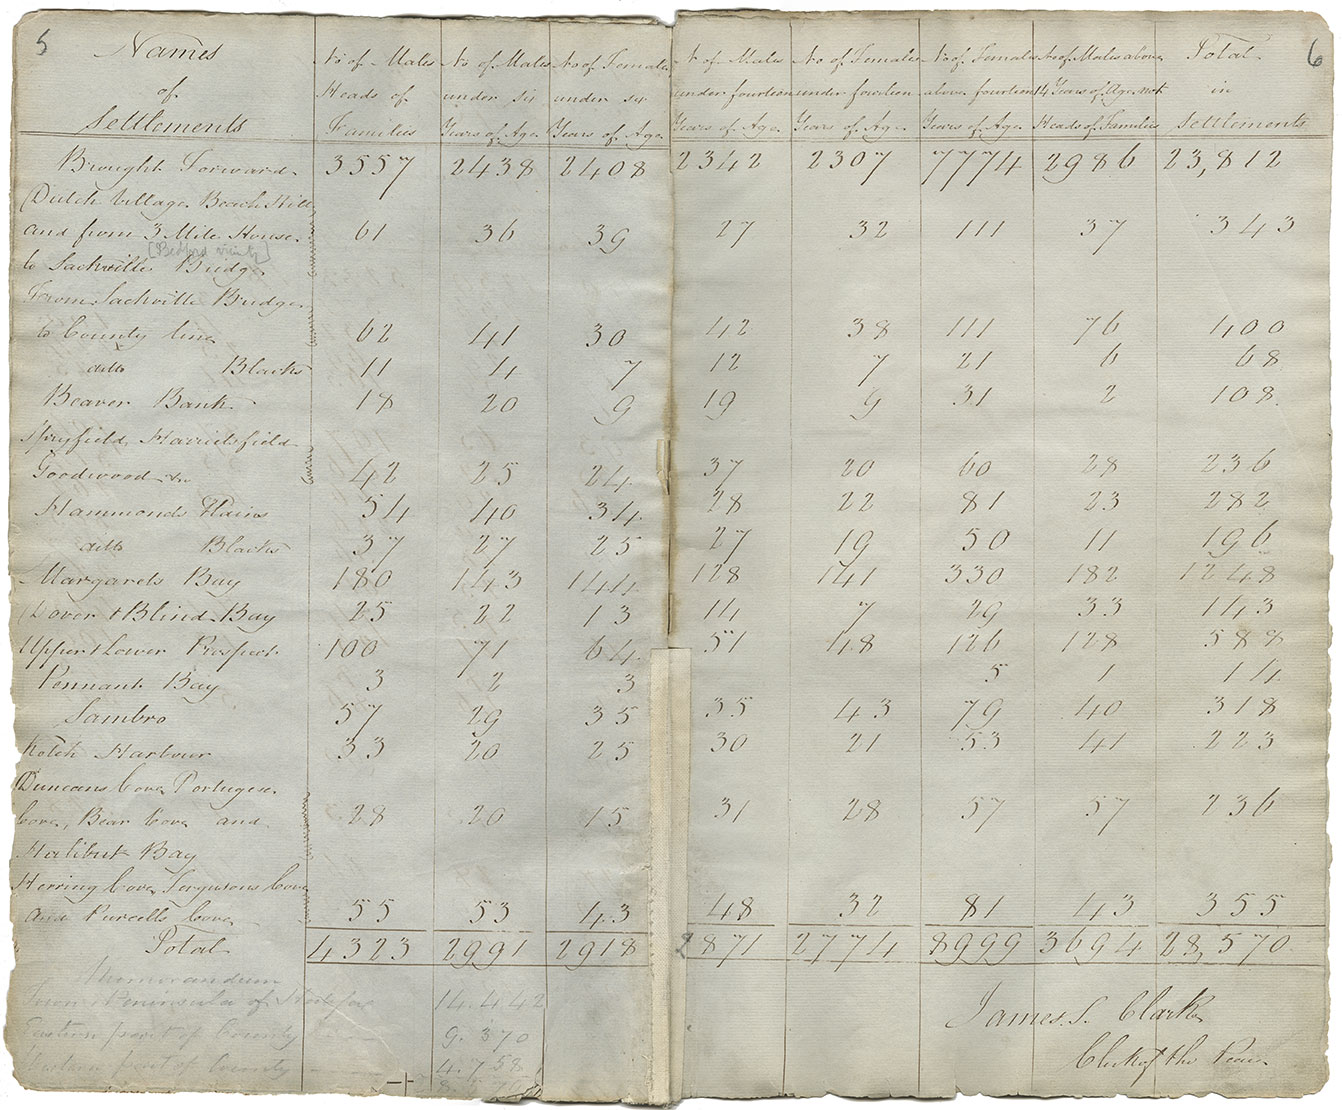 5 6
Names of Settlements | No of Males Heads of Families | No of Males under six Years of Age | No of Females under six Years of Age | No of Males under fourteen Years of Age | No of Females under fourteen Years of Age | No of Females above fourteen Years of Age | No of Males above 14 Years of Age not Heads of Families | Total in Settlements
Brought Forward 3557 2438 2408 2342 2307 7774 2986 23,812
Dutch Village Beach Hill
and from 3 Mile House 61 36 39 27 32 111 37 343
[Bedford vicinity]
to Sackville Bridge
From Sackville Bridge
to County line 62 41 30 42 38 111 76 400
ditto Blacks 11 4 7 12 7 21 6 68
Beaver Bank 18 20 9 19 9 31 2 108
Spryfield Harrietsfield
Goodwood &c 42 25 24 37 20 60 28 236
Hammonds Plains 54 40 34 28 22 81 23 282
ditto Blacks 37 27 25 27 19 50 11 196
Margarets Bay 180 143 144 128 141 330 182 1248
Dover & Blind Bay 25 22 13 14 7 29 33 143
Upper & Lower Prospect 100 71 64 51 48 126 128 588
Pennant Bay 3 2 3 5 1 14
Sambro 57 29 35 35 43 79 40 318
Ketch Harbour 33 20 25 30 21 53 41 223
Duncans Cove Portugese
Cove, Bear Cove and 28 20 15 31 28 57 57 236
Halibut Bay
Herring Cove Fergusons Cove
and Purcells Cove 55 53 43 48 32 81 43 355
Total 4323 2991 2918 2871 2774 8999 3694 28,570
Memorandum
Town & Peninsula of Halifax 14.442
Eastern part of County 9.370
Western part of County 4.758
28.570
James S. Clarke
Clerk of the Peace